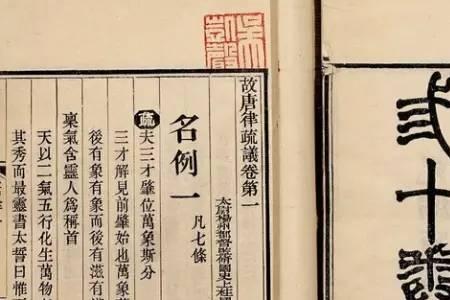 十
故唐律疏議卷第一
太尉揚州都督監脩國史上柱國
名例一 凡七條
疏 夫三才肇位萬象斯分
三才解見前肇始也萬象
後有象有象而後有滋有滋
稟氣含靈人爲稱首
天以二氣五行化生萬物
其秀而最靈書太誓曰惟